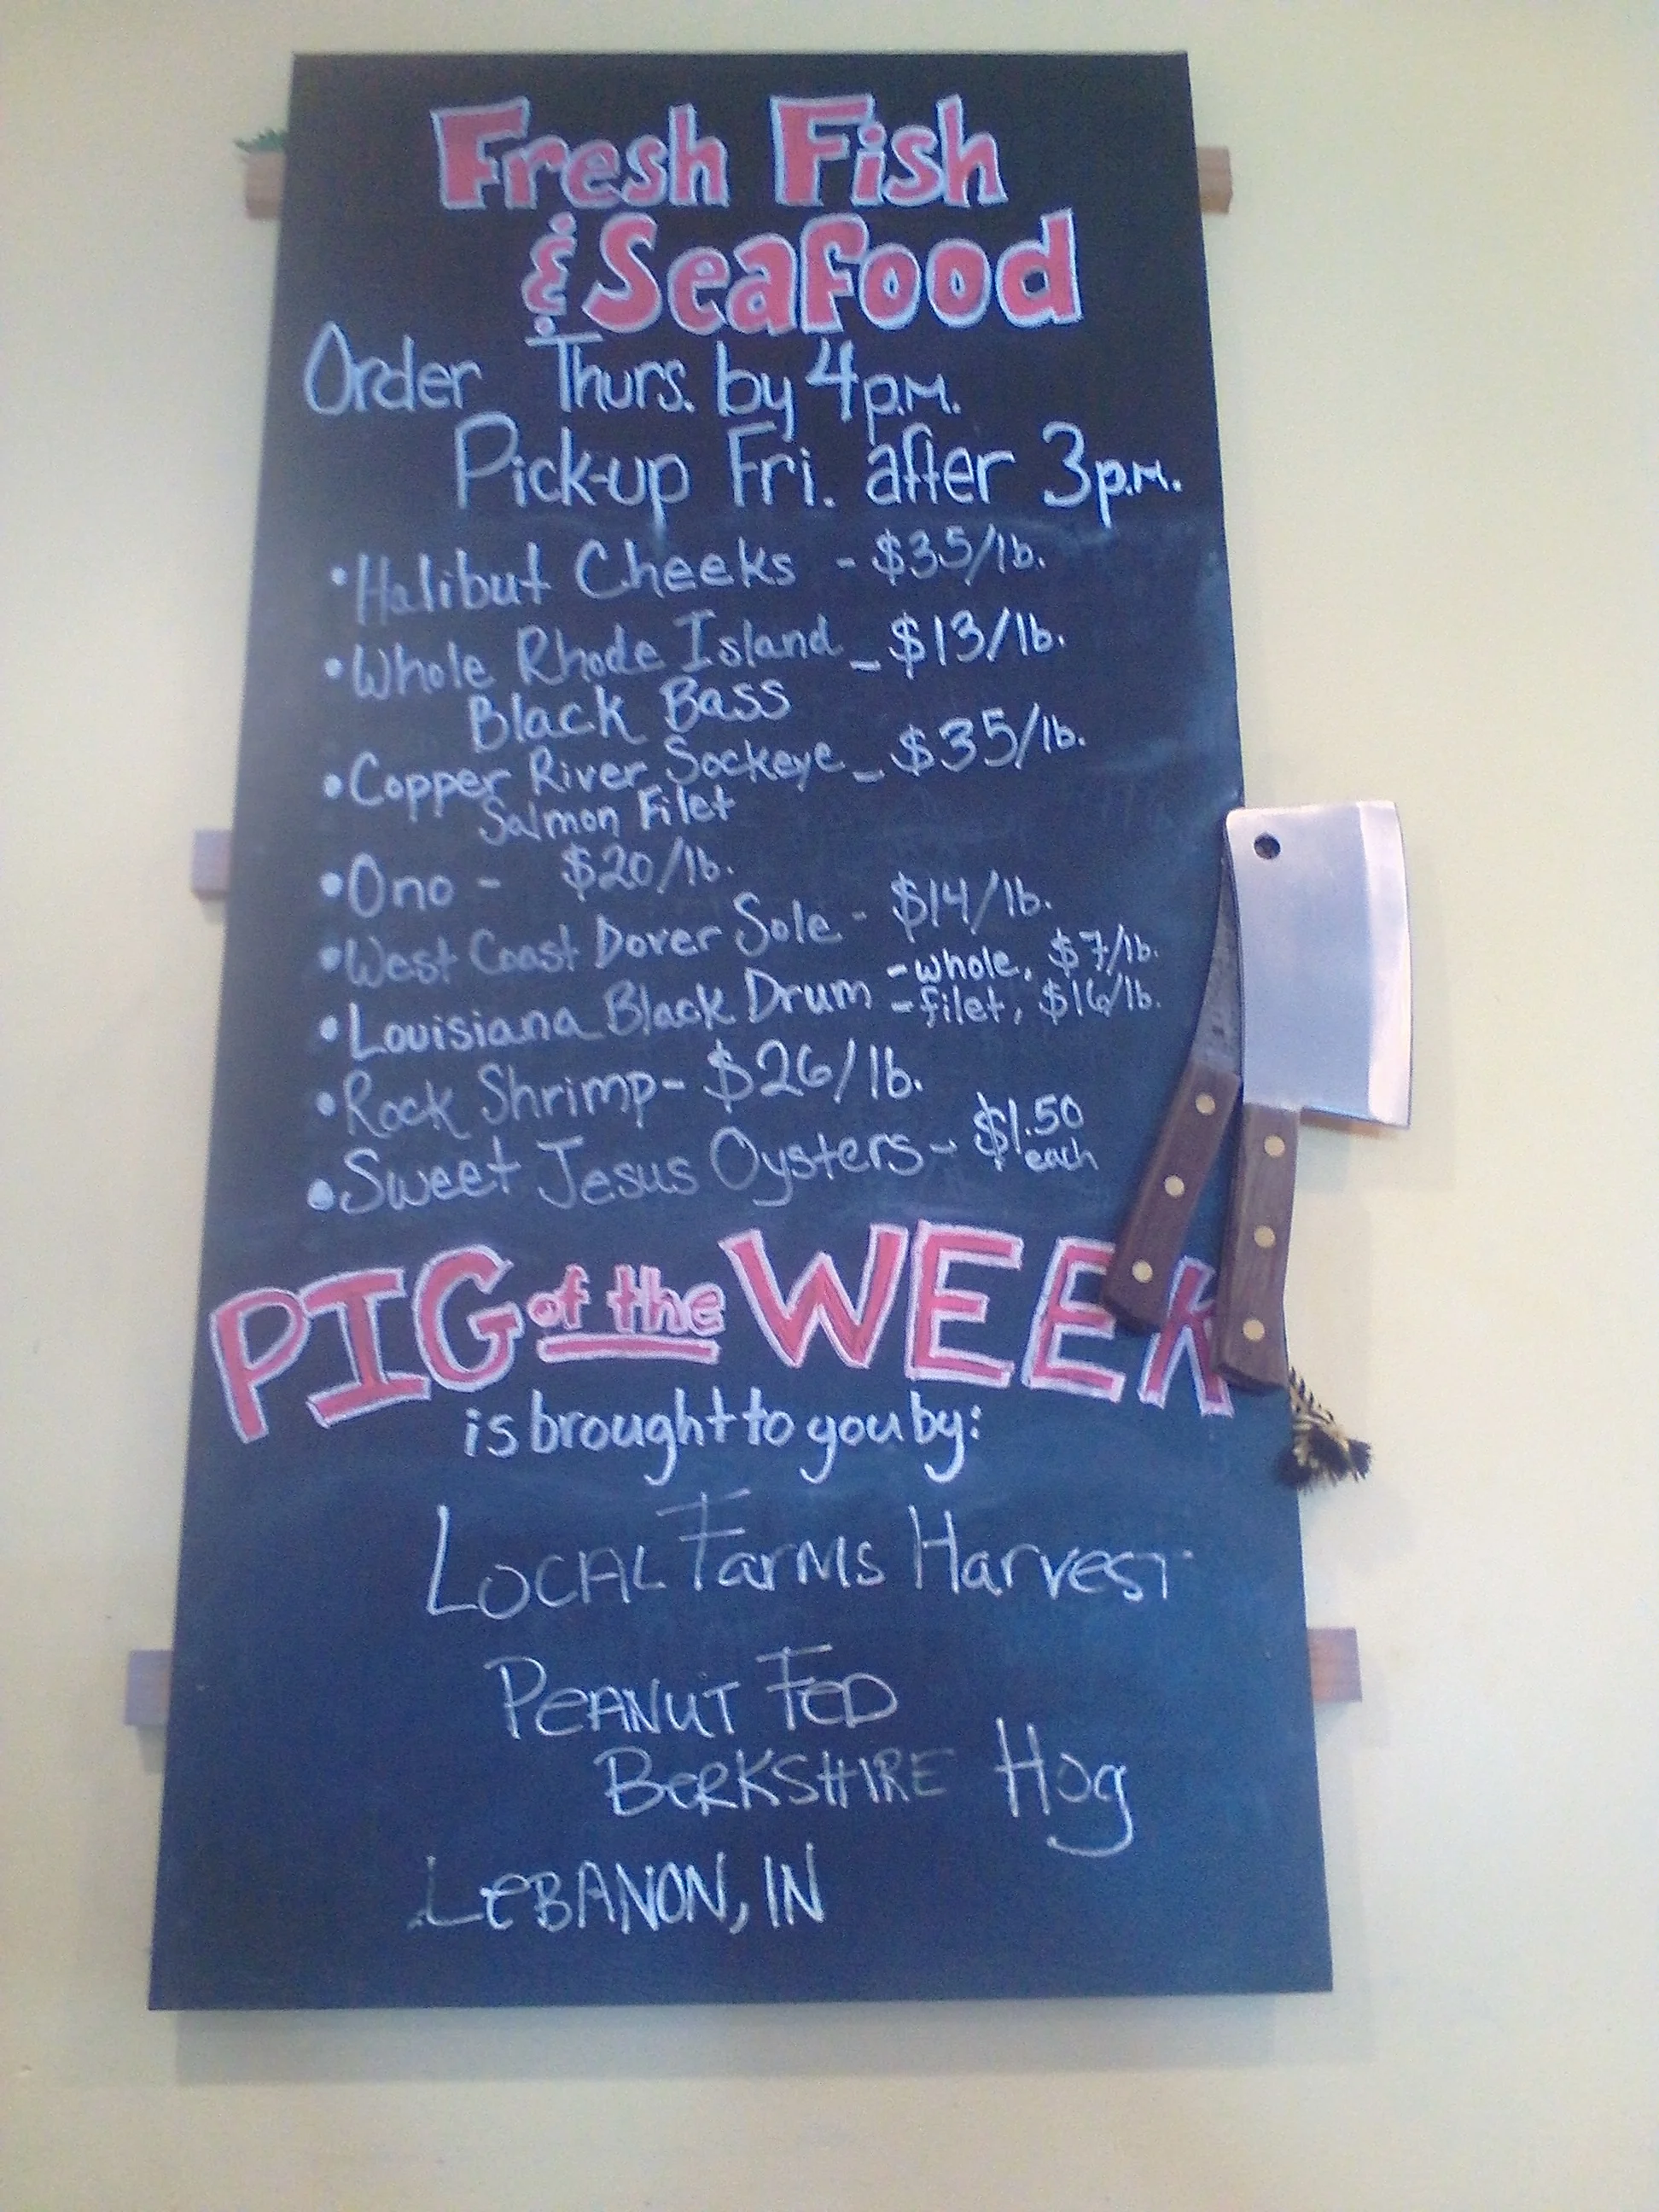 Fresh Fish
& Seafood
Order Thurs. by 4 p.m.
Pick-up Fri. after 3 p.m.
•Halibut Cheeks - $35/lb.
•Whole Rhode Island - $13/lb.
Black Bass
•Copper River Sockeye - $35/lb.
Salmon Filet
•Ono - $20/lb.
•West Coast Dover Sole - $14/lb.
•Louisiana Black Drum -whole, $7/lb.
-filet, $16/lb.
•Rock Shrimp- $26/lb.
•Sweet Jesus Oysters- $1.50
each
PIG of the WEEK
is brought to you by:
LOCAL Farms Harvest
PEANUT FED
BERKSHIRE Hog
LEBANON, IN